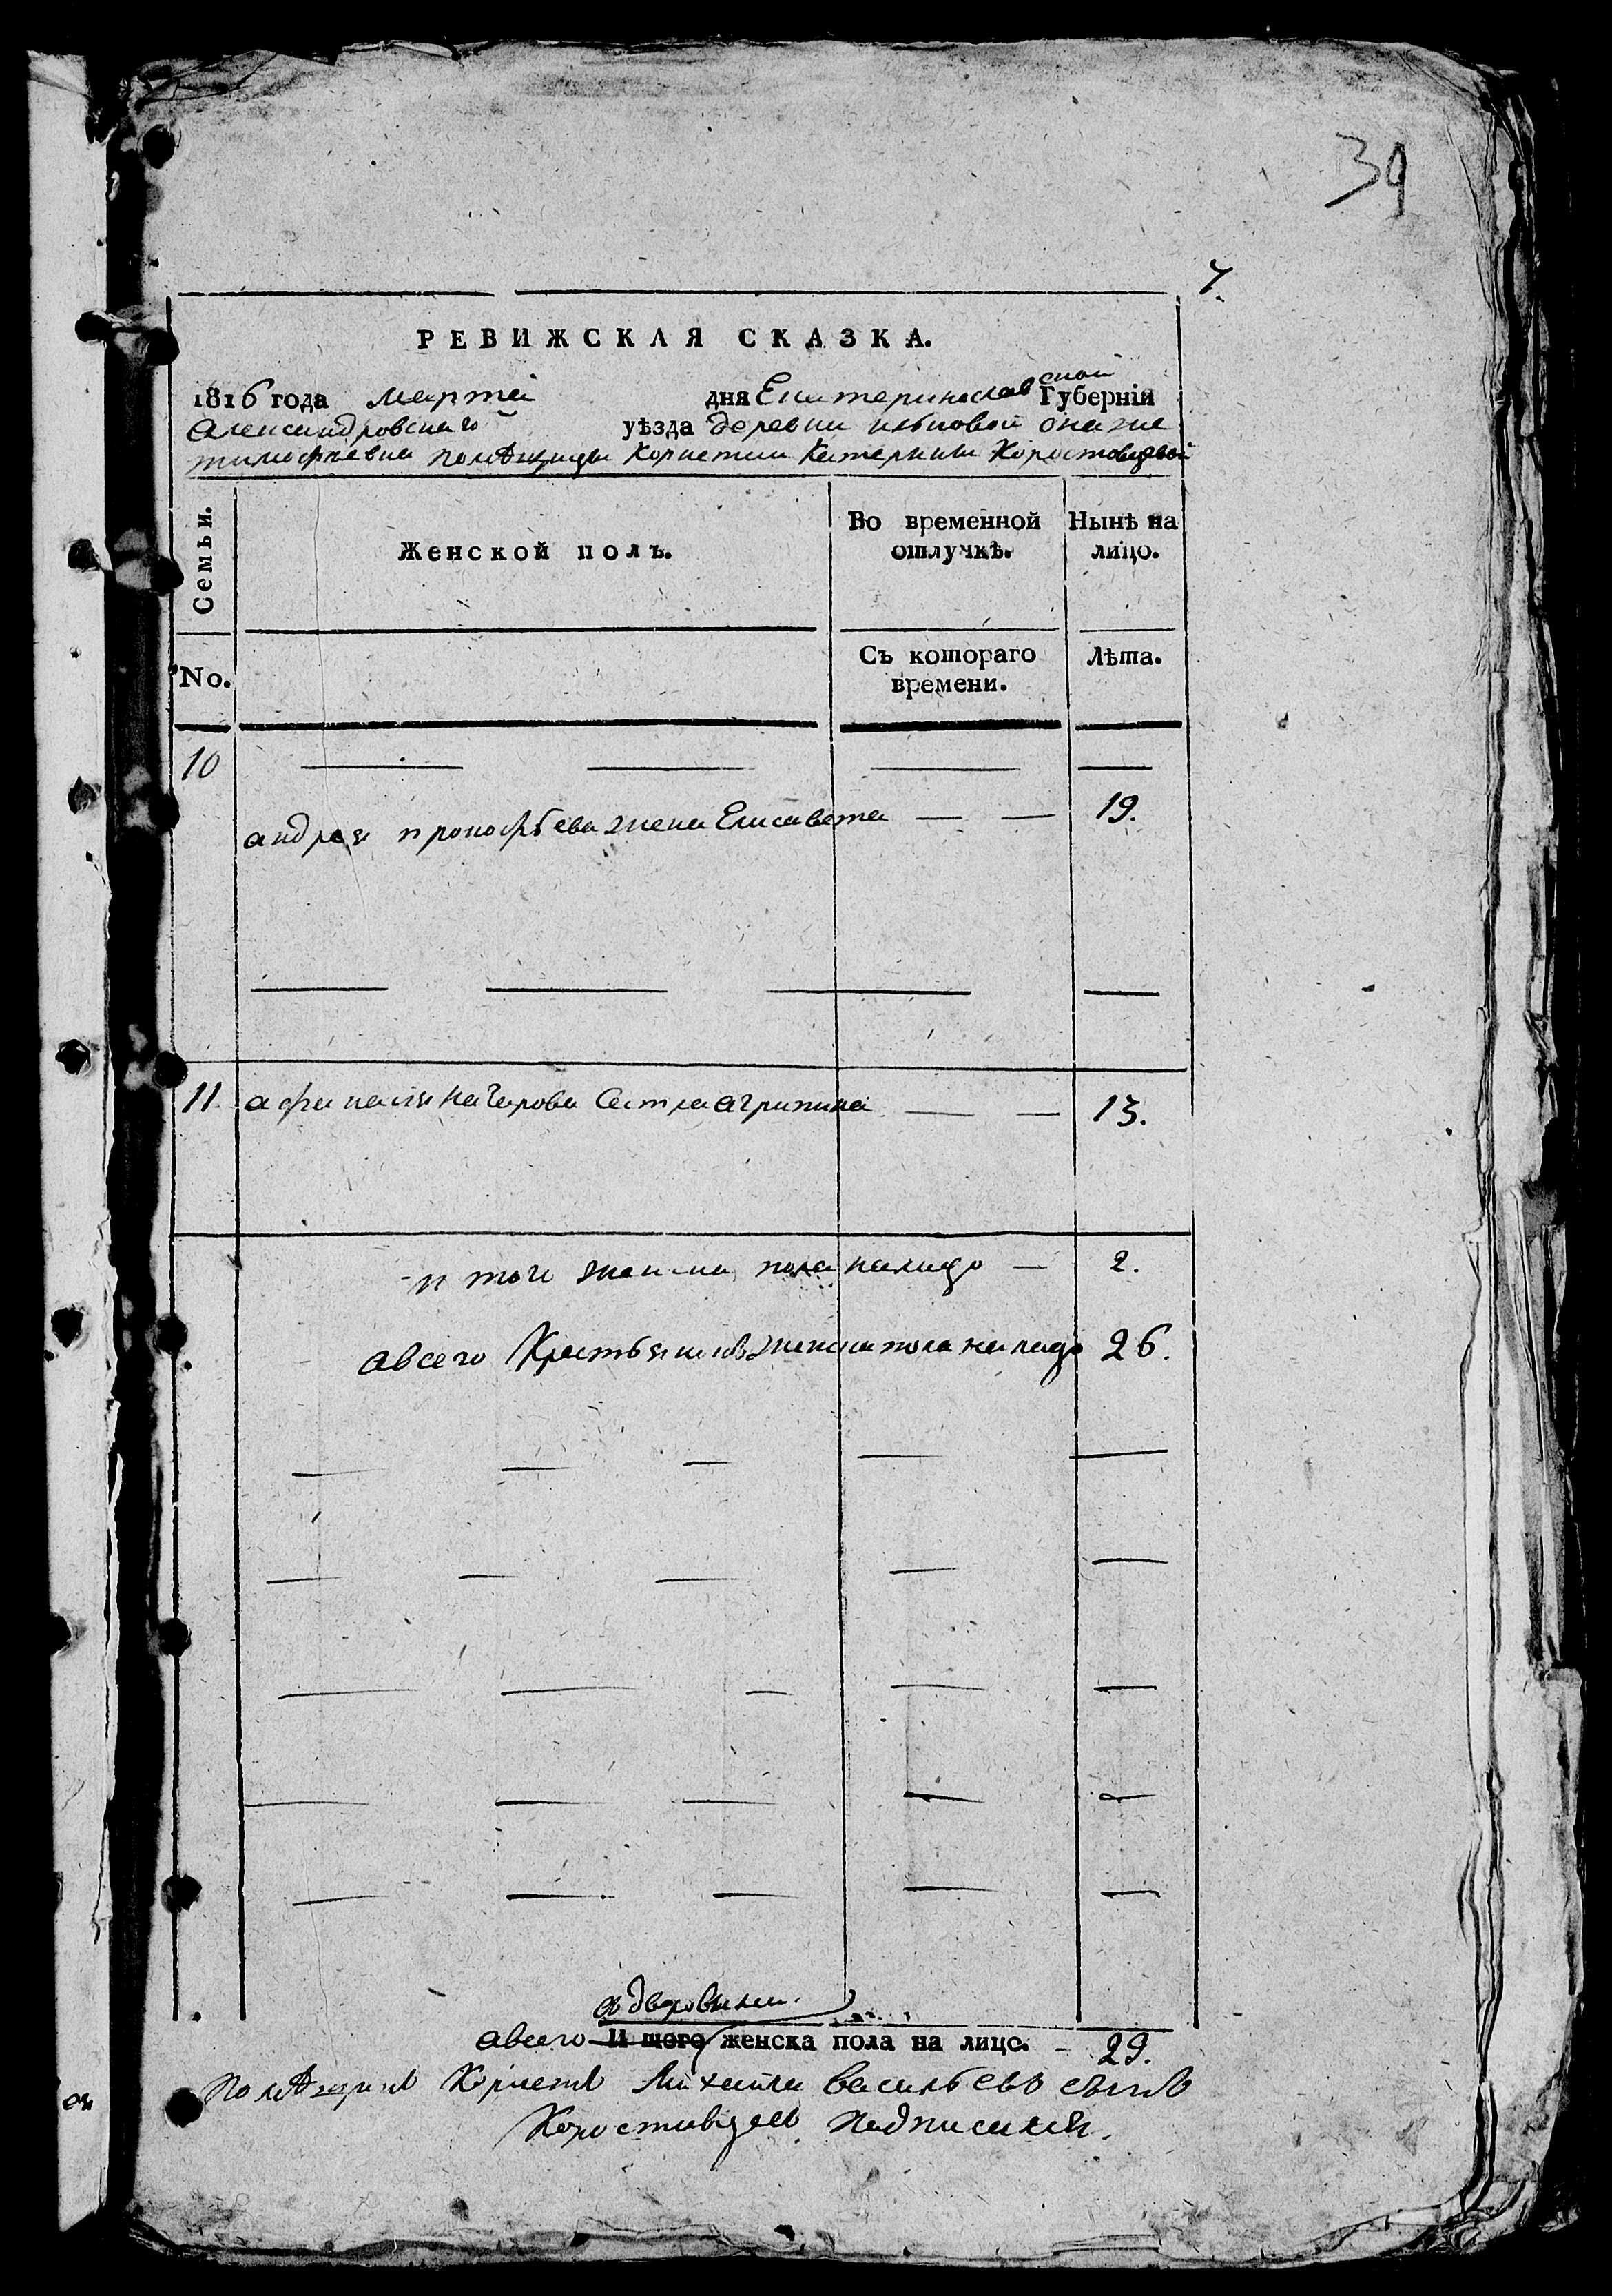 39
7.
РЕВИЖСКАЯ СКАЗКА.
1816 года марта дня Екатеринославской Губерніи
Александровскаго уѣзда деревни онаже
тимофѣевка помѣщицы Корнетши Катерины Коростовцевой
Семьи. Женской полъ. Во временной отлучкѣ. Нынѣ на лицо.
No. Съ котораго времени. Лѣта.
10
андрея прокофьева жена Елисавета 19.
11 афанасия Качерова Сестра агрипина 13.
итого женска пола налицо 2.
авсего Крестьянъ женска пола налицо 26.
здворовыми
авсего И того женска пола на лицо. 29.
Помѣщикъ Корнетъ Михайла васильевъ сынъ
Коростовцовъ подписался.